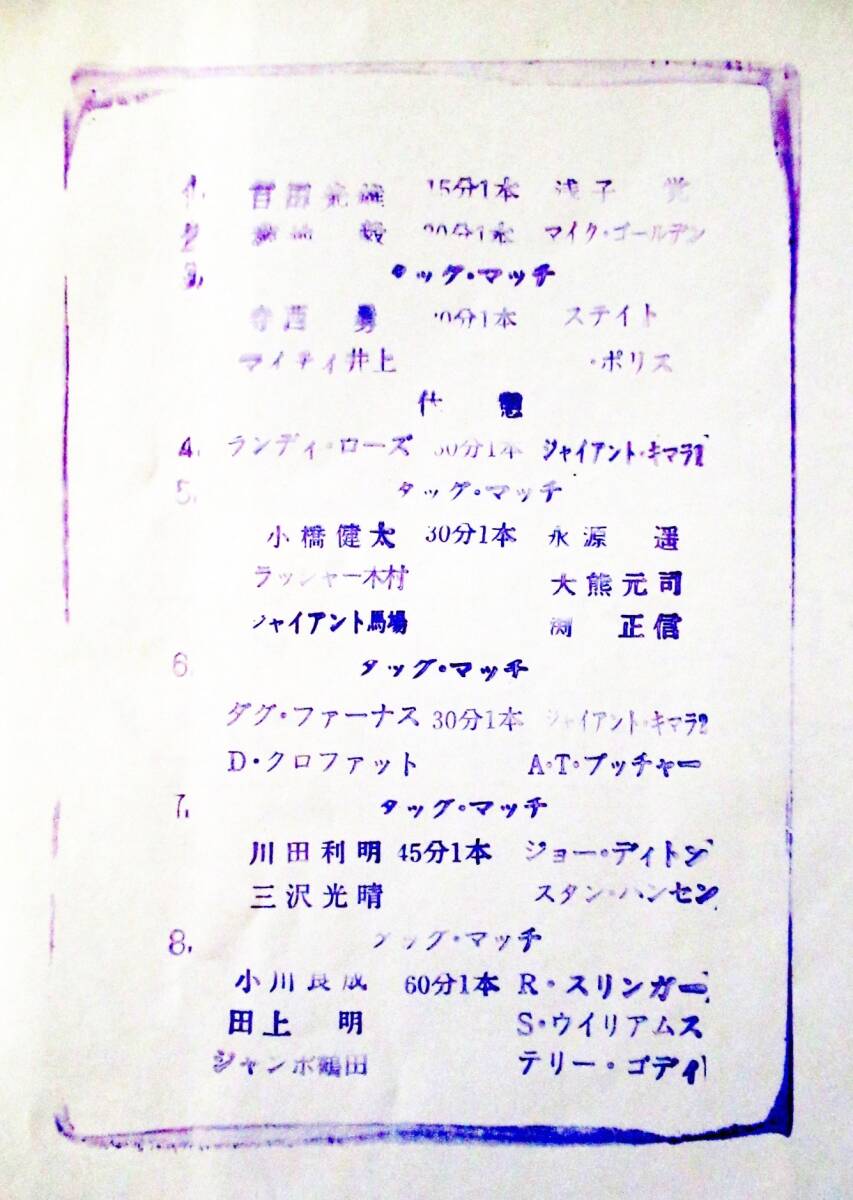 1. 百田光雄 15分1本 浅子 覚
2. 菊地 毅 20分1本 マイク・ゴールデン
3. タッグ・マッチ
寺西 勇 20分1本 ステイト
マイティ井上 ・ポリス
休憩
4. ランディ・ローズ 30分1本 ジャイアント・キマラ1
5. タッグ・マッチ
小橋健太 30分1本 永源 遥
ラッシャー木村 大熊元司
ジャイアント馬場 渕 正信
6. タッグ・マッチ
ダグ・ファーナス 30分1本 ジャイアント・キマラ2
D・クロファット A・T・ブッチャー
7. タッグ・マッチ
川田利明 45分1本 ジョー・ディトン
三沢光晴 スタン・ハンセン
8. タッグ・マッチ
小川良成 60分1本 R・スリンガー
田上 明 S・ウイリアムス
ジャンボ鶴田 テリー・ゴディ